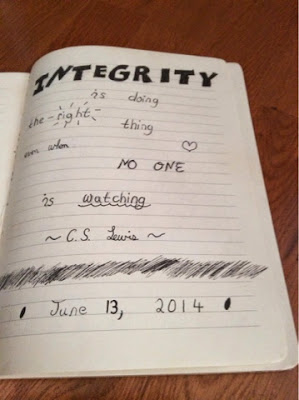 INTEGRITY
is doing
the right thing
even when
NO ONE
is watching
~ C.S. Lewis ~
June 13, 2014